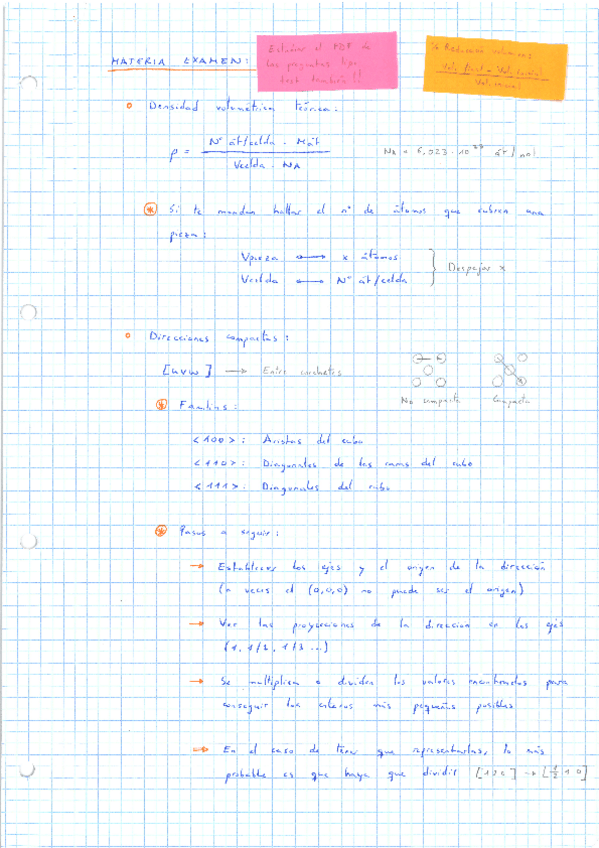 MATERIA EXAMEN:
Estudiar el PDF de
las preguntas tipo
test también!!
% Reducción volumen:
Vol. final - Vol. inicial
Vol. inicial
Densidad volumétrica teórica:
ρ = Nº át/celda · Mát
Vcelda · NA
NA = 6,023 · 10²³ át/mol
Si te mandan hallar el nº de átomos que cubren una
pieza:
Vpieza ⟷ x átomos
Vcelda ⟷ Nº át/celda
Despejar x
Direcciones compactas:
[uvw] → Entre corchetes
No compacta
Compacta
Familias:
<100>: Aristas del cubo
<110>: Diagonales de las caras del cubo
<111>: Diagonales del cubo
Pasos a seguir:
→ Establecer los ejes y el origen de la dirección
(a veces el (0,0,0) no puede ser el origen)
→ Ver las proyecciones de la dirección en los ejes
(1, 1/2, 1/3 ...)
→ Se multiplica o dividen los valores encontrados para
conseguir los enteros más pequeños posibles
→ En el caso de tener que representarlas, lo más
probable es que haya que dividir [120] → [½ 1 0]